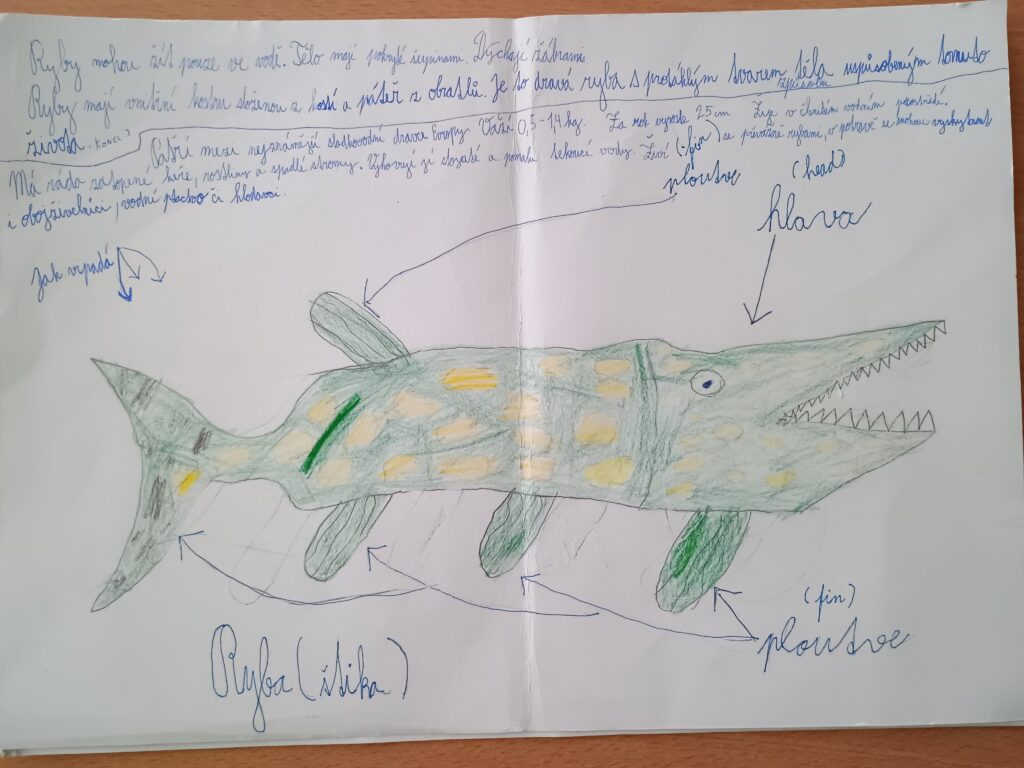 Ryby mohou žít pouze ve vodě. Tělo mají pokryté šupinami. Dýchají žábrami
Ryby mají vnitřní kostru složenou z kostí a páteř z obratlů. Je to dravá ryba s protáklým tvarem těla uspůsobeným tomuto
způsobu
života. KONEC
Patří mezi nejznámější sladkovodní dravce Evropy. Váží 0,5-1,4 kg. Za rok vyroste 25 cm Žije v členitém vodním prostředí.
Má ráda zatopené keře, rostliny a spadlé stromy. Vyhovují jí stojaté a pomalu tekoucí vody. Živí se převážně rybami, v potravě se mohou vyskytnout
i obojživelníci, vodní ptactvo či hlodavci.
(fin)
ploutve
(head)
hlava
Jak vipadá
(fin)
ploutve
Ryba (štika)